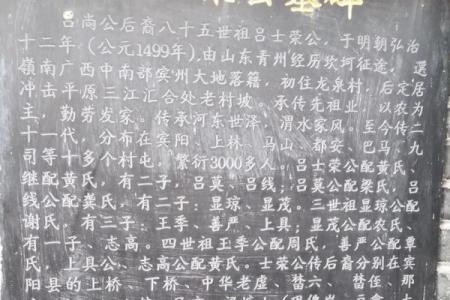 公墓碑
吕尚公后裔八十五世祖吕士荣公,于明朝弘治
十二年(公元1499年)由山东青州经历坎坷征途,迁
岭南广西中南部宾州大地落籍,初住龙泉村,后定居
冲击平原三江汇合处老村坡。承传先祖业,以农为
主,勤劳发家。传承河东世泽,渭水家风。至今传二
十一代,分布在宾阳、上林、马山、都安、巴马、九
司等十多个村屯,繁衍3000多人。吕士荣公配黄氏,
继配黄氏,有二子,吕莫、吕线;吕莫公配梁氏,吕
线公配龚氏,有二子:显琼、显茂。三世祖显琼公配
谢氏,有三子:王季、善严、上具;显茂公配农氏,
有一子、志高。四世祖王季公配周氏,善严公配覃
氏,上具公、志高公配黄氏。士荣公传后裔分别在宾
阳县的上桥、下桥、中华老虚、